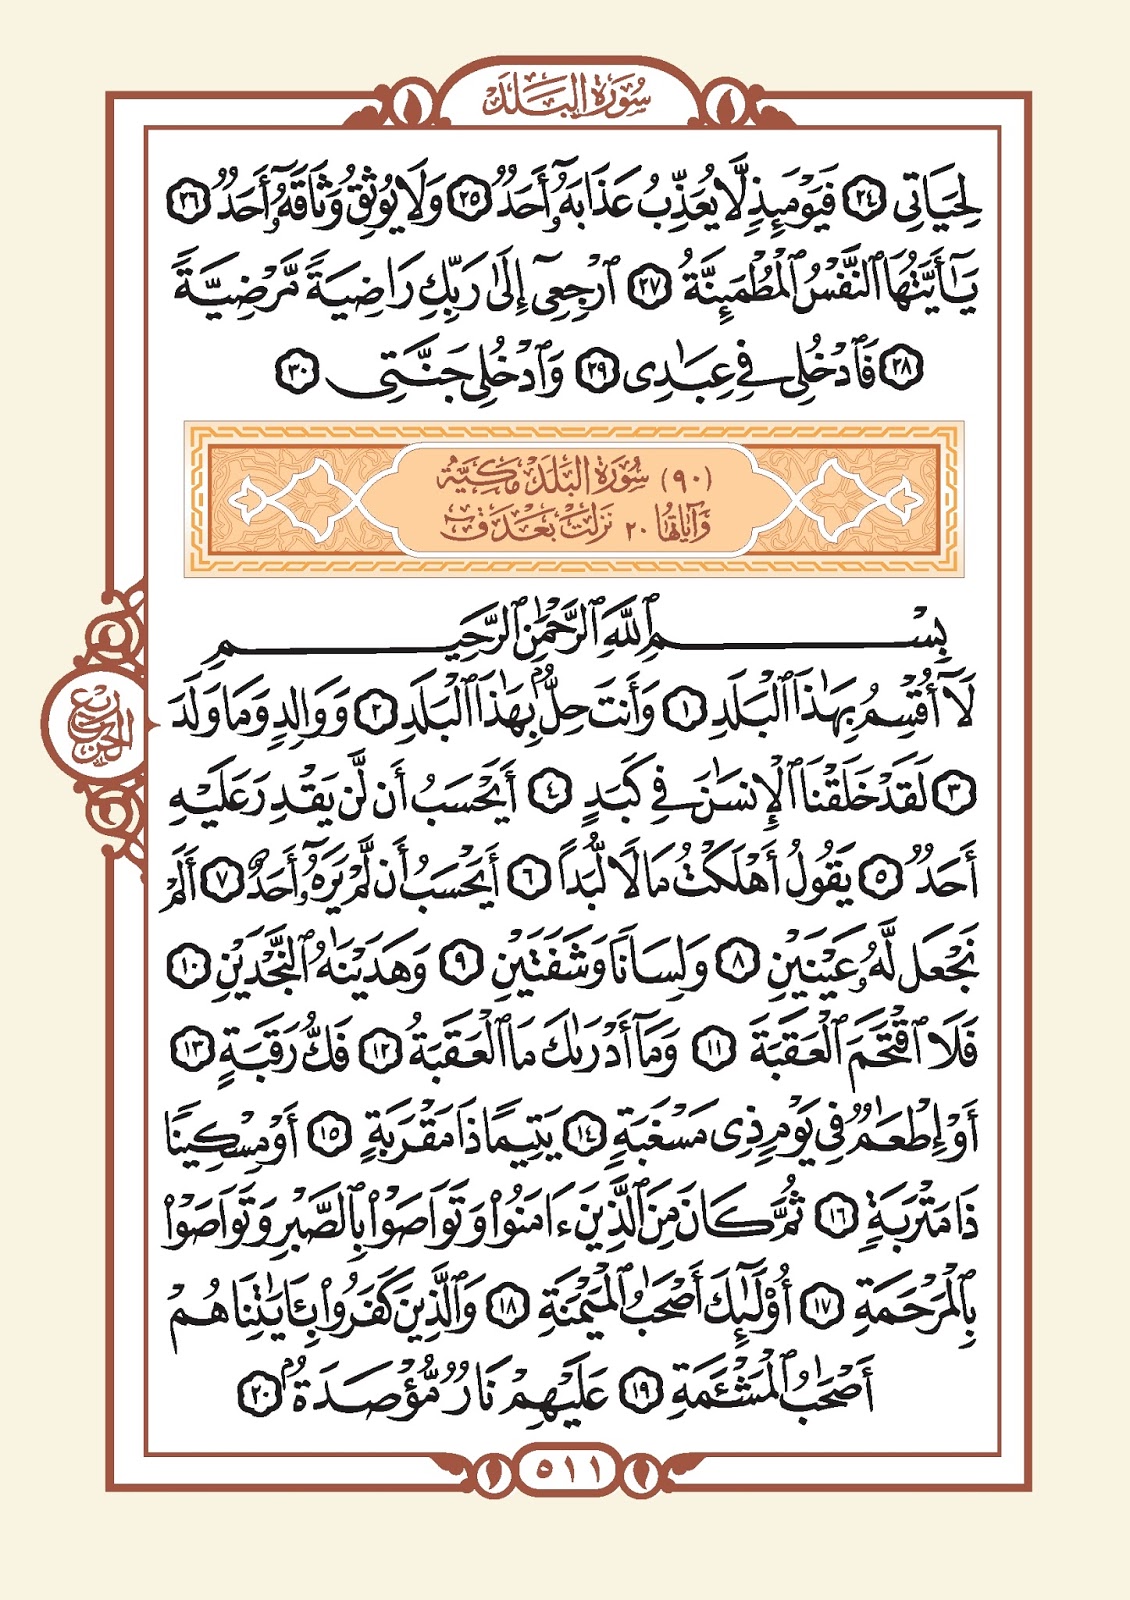 سُورَةُ البَلَدِ
لِحَيَاتِى ٢٤ فَيَوْمَئِذٍ لَّا يُعَذِّبُ عَذَابَهُۥٓ أَحَدٌ ٢٥ وَلَا يُوثِقُ وَثَاقَهُۥٓ أَحَدٌ ٢٦
يَـٰٓأَيَّتُهَا ٱلنَّفْسُ ٱلْمُطْمَئِنَّةُ ٢٧ ٱرْجِعِىٓ إِلَىٰ رَبِّكِ رَاضِيَةً مَّرْضِيَّةً
٢٨ فَٱدْخُلِى فِى عِبَـٰدِى ٢٩ وَٱدْخُلِى جَنَّتِى ٣٠
(٩٠) سُورَةُ البَلَدِ مَكِيَّةٌ
وَآيَاتُهَا ٢٠ نَزَلَتْ بَعْدَ قٓ
بِسْمِ ٱللَّهِ ٱلرَّحْمَـٰنِ ٱلرَّحِيمِ
لَآ أُقْسِمُ بِهَـٰذَا ٱلْبَلَدِ ١ وَأَنتَ حِلٌّۢ بِهَـٰذَا ٱلْبَلَدِ ٢ وَوَالِدٍ وَمَا وَلَدَ
٣ لَقَدْ خَلَقْنَا ٱلْإِنسَـٰنَ فِى كَبَدٍ ٤ أَيَحْسَبُ أَن لَّن يَقْدِرَ عَلَيْهِ
أَحَدٌ ٥ يَقُولُ أَهْلَكْتُ مَالًا لُّبَدًا ٦ أَيَحْسَبُ أَن لَّمْ يَرَهُۥٓ أَحَدٌ ٧ أَلَمْ
نَجْعَل لَّهُۥ عَيْنَيْنِ ٨ وَلِسَانًا وَشَفَتَيْنِ ٩ وَهَدَيْنَـٰهُ ٱلنَّجْدَيْنِ ١٠
فَلَا ٱقْتَحَمَ ٱلْعَقَبَةَ ١١ وَمَآ أَدْرَىٰكَ مَا ٱلْعَقَبَةُ ١٢ فَكُّ رَقَبَةٍ ١٣
أَوْ إِطْعَـٰمٌ فِى يَوْمٍ ذِى مَسْغَبَةٍ ١٤ يَتِيمًا ذَا مَقْرَبَةٍ ١٥ أَوْ مِسْكِينًا
ذَا مَتْرَبَةٍ ١٦ ثُمَّ كَانَ مِنَ ٱلَّذِينَ ءَامَنُوا۟ وَتَوَاصَوْا۟ بِٱلصَّبْرِ وَتَوَاصَوْا۟
بِٱلْمَرْحَمَةِ ١٧ أُو۟لَـٰٓئِكَ أَصْحَـٰبُ ٱلْمَيْمَنَةِ ١٨ وَٱلَّذِينَ كَفَرُوا۟ بِـَٔايَـٰتِنَا هُمْ
أَصْحَـٰبُ ٱلْمَشْـَٔمَةِ ١٩ عَلَيْهِمْ نَارٌ مُّؤْصَدَةٌۢ ٢٠
ربع
الحزب
٥١١